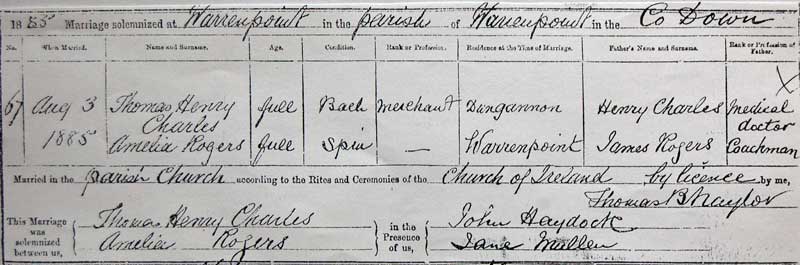 1885 Marriage solemnized at Warrenpoint in the parish of Warrenpoint in the Co Down
No. When Married. Name and Surname. Age. Condition. Rank or Profession. Residence at the Time of Marriage. Father's Name and Surname. Rank or Profession of Father.
67 Aug 3 Thomas Henry full Bach merchant Dungannon Henry Charles Medical
Charles doctor
1885 Amelia Rogers full Spin — Warrenpoint James Rogers Coachman
Married in the parish Church according to the Rites and Ceremonies of the Church of Ireland by licence by me,
Thomas B Naylor
This Marriage was solemnized between us, Thomas Henry Charles in the Presence of us, John Haydock
Amelia Rogers Jane Mullen